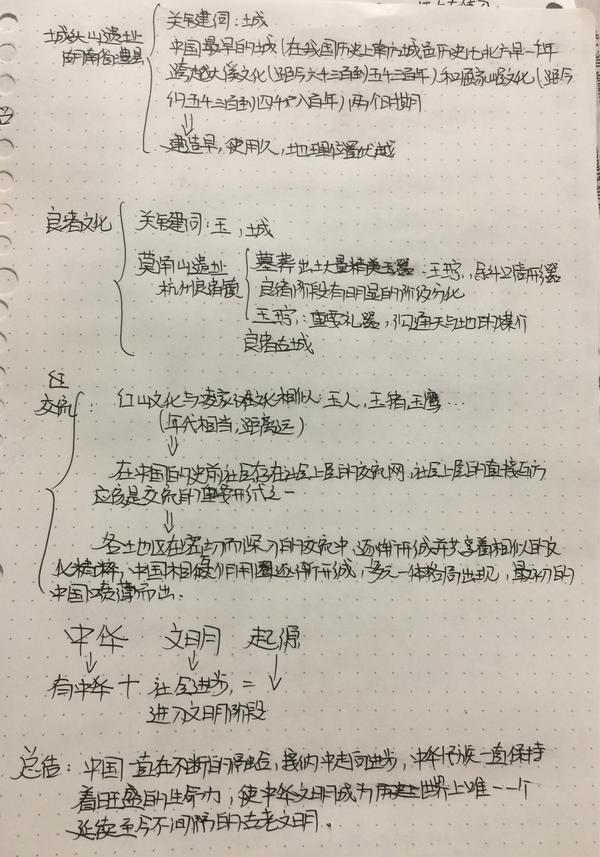 关键词：土城
城头山遗址
中国最早的城（在我国历史上南方城邑历史比北方早一千年
湖南省澧县
跨越大溪文化（距今六千三百到五千三百年）和屈家岭文化（距今
约五千三百到四千八百年）两个时期
建造早，使用久，地理位置优越
良渚文化
关键词：玉，土城
莫角山遗址
墓葬出土大量精美玉器：玉琮，
杭州良渚镇
良渚阶段有明显的阶级分化
玉琮：重要礼器，沟通天与地的媒介
良渚古城
红
交流：
红山文化与凌家滩文化相似：玉人，玉猪，玉鹰…
（年代相当，距离远）
在中国的史前社会存在社会上层的交流网，社会上层的直接互访
应该是交流的重要形式之一
各土地区在密切而深刻的交流中，逐渐形成并共享着相似的文
化精粹，中国相互作用圈逐渐形成，多元一体格局出现，最初的
中国喷薄而出。
中华 文明 起源
有中华 + 社会进步 =
进入文明阶段
总结：中国一直在不断的融合，接纳中走向进步，中华民族一直保持
着旺盛的生命力，使中华文明成为历史上世界上唯一一个
延续至今不间隔的古老文明。